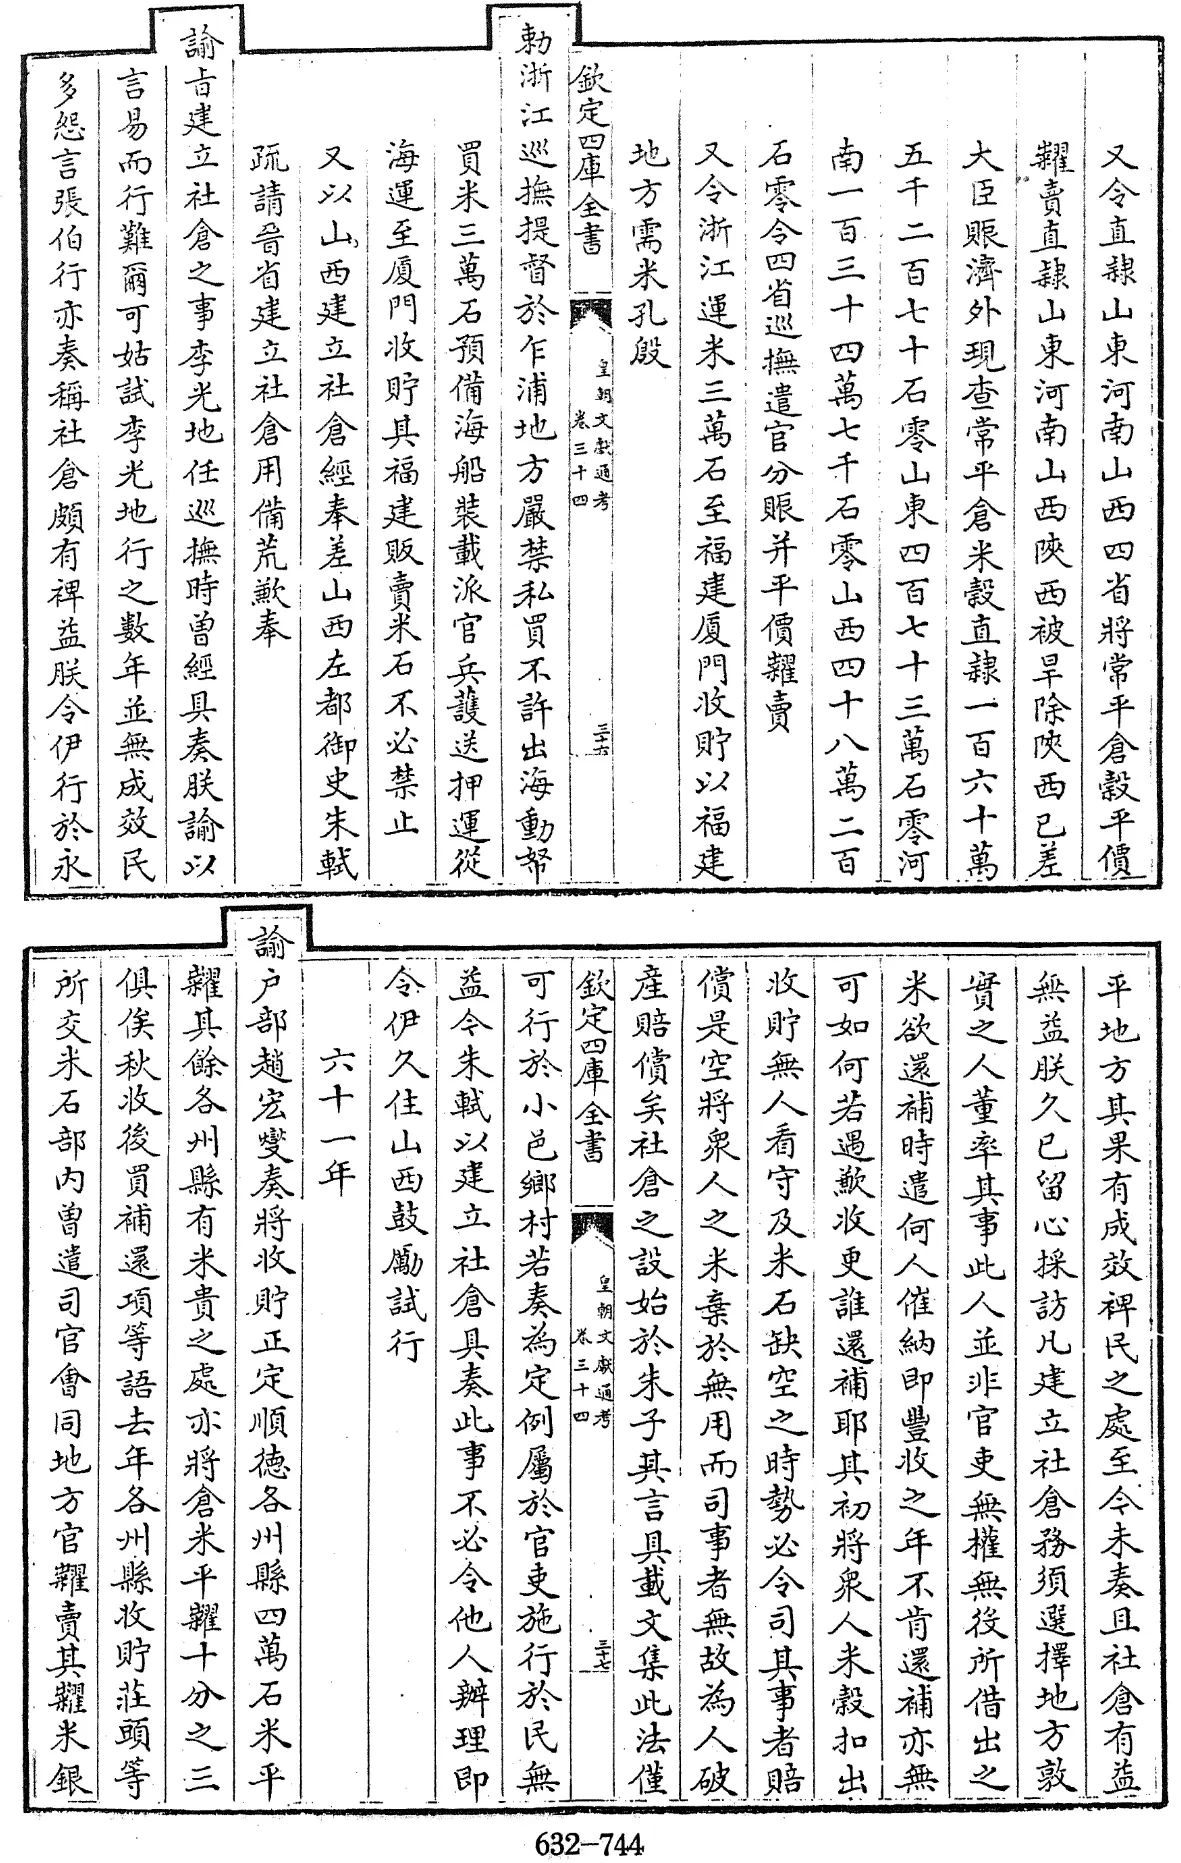 又令直隷山東河南山西四省將常平倉穀平價
糶賣直隷山東河南山西陝西被旱除陝西已差
大臣賑濟外現查常平倉米穀直隷一百六十萬
五千二百七十石零山東四百七十三萬石零河
南一百三十四萬七千石零山西四十八萬二百
石零令四省巡撫遣官分賑并平價糶賣
又令浙江運米三萬石至福建厦門收貯以福建
地方需米孔殷
欽定四庫全書
皇朝文獻通考
卷三十四
三十六
勅浙江巡撫提督於乍浦地方嚴禁私買不許出海動帑
買米三萬石預備海船裝載派官兵護送押運從
海運至厦門收貯其福建販賣米石不必禁止
又以山西建立社倉經奉差山西左都御史朱軾
疏請晉省建立社倉用備荒歉奉
諭旨建立社倉之事李光地任巡撫時曽經具奏朕諭以
言易而行難爾可姑試李光地行之數年並無成效民
多怨言張伯行亦奏稱社倉頗有裨益朕令伊行於永
平地方其果有成效裨民之處至今未奏且社倉有益
無益朕久已留心採訪凡建立社倉務須選擇地方敦
實之人董率其事此人並非官吏無權無後所借出之
米欲還補時遣何人催納即豐收之年不肯還補亦無
可如何若遇歉收更誰還補耶其初將衆人米穀扣出
收貯無人看守及米石缺空之時勢必令司其事者賠
償是空將衆人之米棄於無用而司事者無故為人破
産賠償矣社倉之設始於朱子其言具載文集此法僅
欽定四庫全書
皇朝文獻通考
卷三十四
三十七
可行於小邑鄉村若奏為定例屬於官吏施行於民無
益今朱軾以建立社倉具奏此事不必令他人辦理即
令伊久住山西鼓勵試行
六十一年
諭户部趙宏燮奏將收貯正定順德各州縣四萬石米平
糶其餘各州縣有米貴之處亦將倉米平糶十分之三
俱俟秋收後買補還項等語去年各州縣收貯莊頭等
所交米石部内曽遣司官會同地方官糶賣其糶米銀
632-744